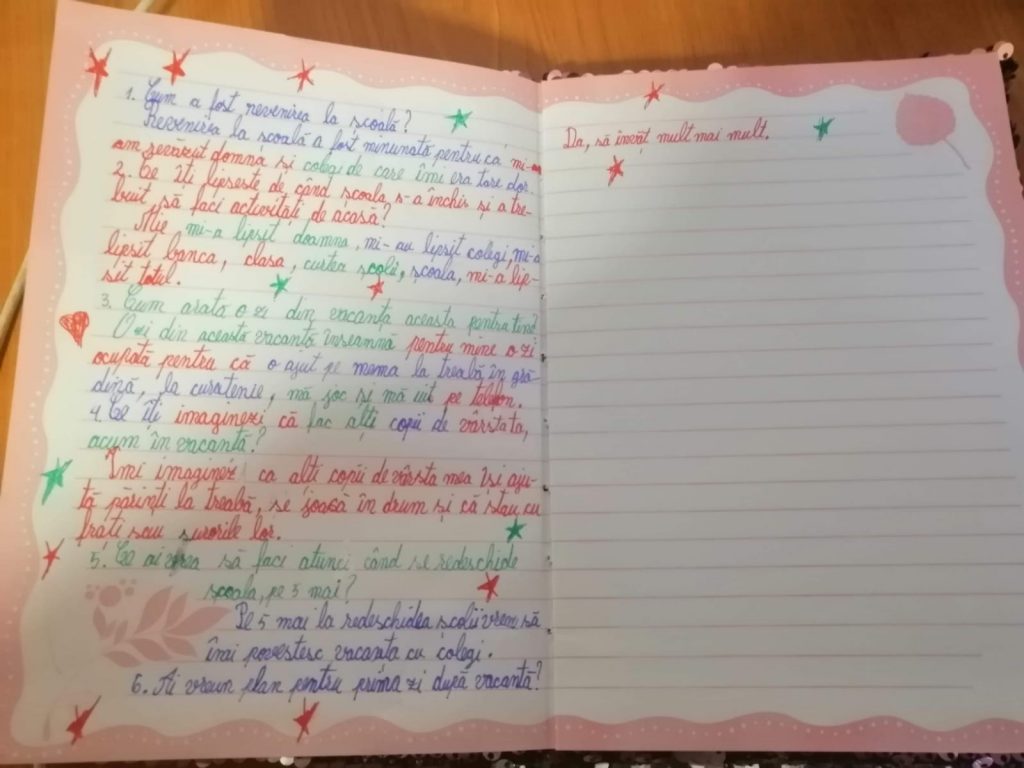 1. Cum a fost revenirea la școală?
Revenirea la școală a fost minunată pentru că mi-am
am revăzut domna și colegi de care îmi era tare dor.
2. Ce îti lipsește de când școala s-a închis și a tre-
buit să faci activități de acasă?
Mie mi-a lipsit doamna, mi-au lipsit colegi, mi-a
lipsit banca, clasa, curtea școlii, școala, mi-a lip-
sit totul.
3. Cum arata o zi din vacanța aceasta pentru tine?
O zi din această vacanță înseamnă pentru mine o zi
ocupată pentru că o ajut pe mama la treabă în gră-
dină, la curatenie, mă joc și mă uit pe telefon.
4. Ce îți imaginezi că fac alți copii de vârstata,
acum în vacantă?
Îmi imaginez ca alti copii de vârsta mea își aju-
tă părinți la treabă, se joacă în drum și că stau cu
frați sau surorile lor.
5. Ce ai vrea să faci atunci când se redeschide
școala, pe 5 mai?
Pe 5 mai la redeschidea școlii vrem să
înai povestesc vacanta cu colegi.
6. Ai vreun plan pentru prima zi după vacantă?
Da, să învăț mult mai mult.